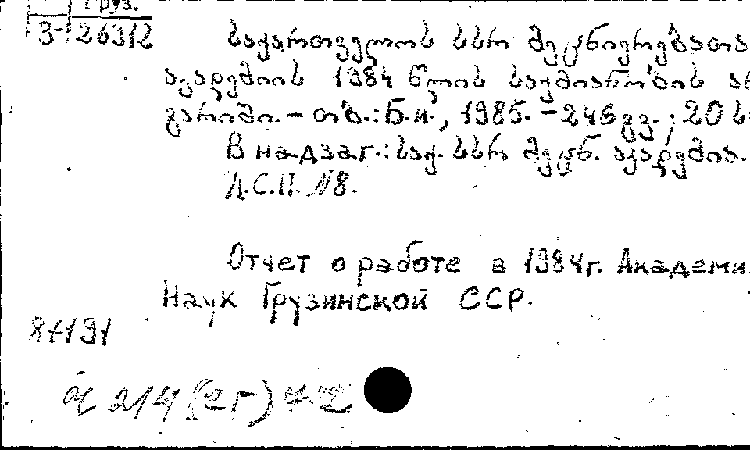 Груз.
3-26312
საქართველოს სსრ მეცნიერებათა
აკადემიის 1984 წლის საქმიანობის ან
გარიში. - თბ.: Б.и., 1985. - 246 გვ.; 20 ს
В надзаг.: საქ. სსრ მეცნ. აკადემია.
Д.С.П. №8.
Отчет о работе в 1984г. Академи
Наук Грузинской ССР.
8+191